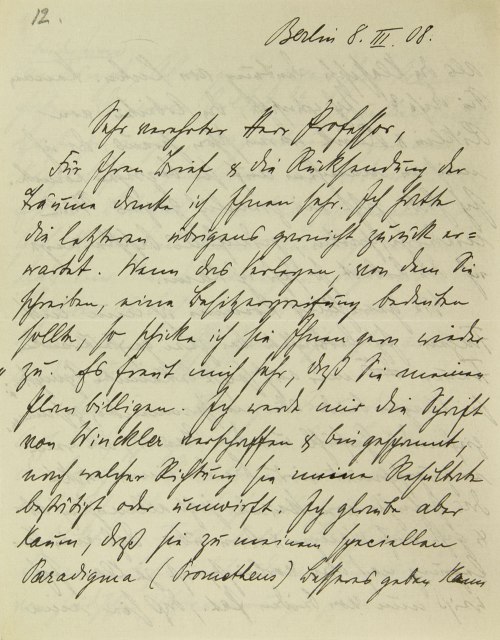 12.
Berlin 8. III. 08.
Sehr verehrter Herr Professor,
Für Ihren Brief & die Rücksendung der
Träume danke ich Ihnen sehr. Ich hatte
die letzteren übrigens garnicht zurück er=
wartet. Wenn das Verlegen, von dem Sie
schreiben, eine Besitzergreifung bedeuten
sollte, so schicke ich sie Ihnen gern wieder
zu. Es freut mich sehr, daß Sie meinen
Plan billigen. Ich werde mir die Schrift
von Winckler verschaffen & bin gespannt,
nach welcher Richtung sie meine Resultate
bestätigt oder umwirft. Ich glaube aber
kaum, daß sie zu meinem speciellen
Paradigma (Prometheus) Besseres geben kann